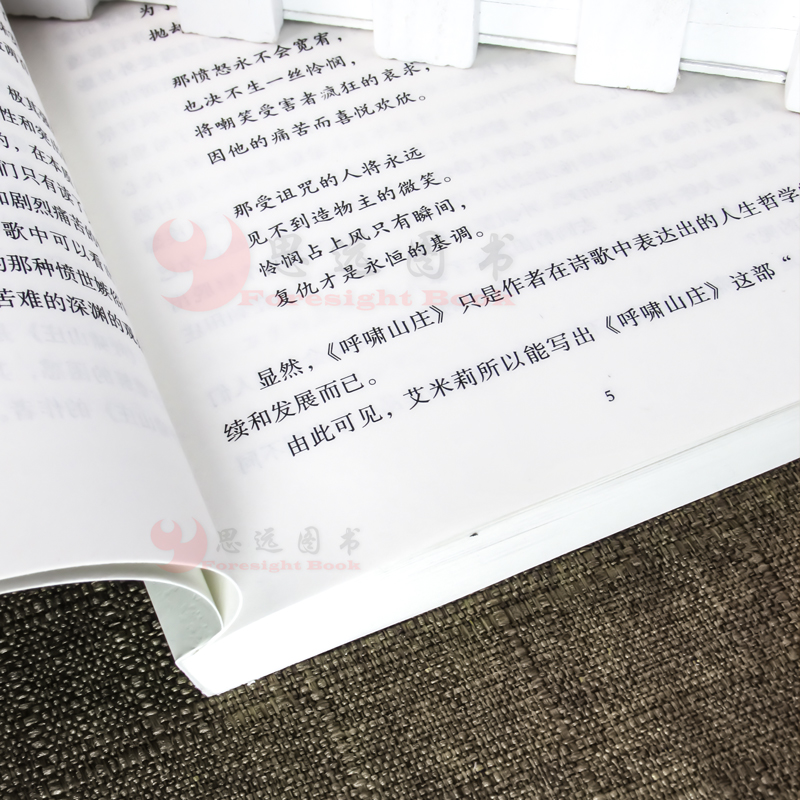 极其
性和突
的，在本质
们只有读了
和剧烈痛苦的
歌中可以看
的那种愤世嫉俗
苦难的深渊的
为了
抛却
那愤怒永不会宽宥，
也决不生一丝怜悯，
将嘲笑受害者疯狂的哀求，
因他的痛苦而喜悦欢欣。
那受诅咒的人将永远
见不到造物主的微笑。
怜悯占上风只有瞬间，
复仇才是永恒的基调。
显然，《呼啸山庄》只是作者在诗歌中表达出的人生哲学
续和发展而已。
由此可见，艾米莉所以能写出《呼啸山庄》这部“
5
思远图书
Foresight Book
思远图书
Foresight Book